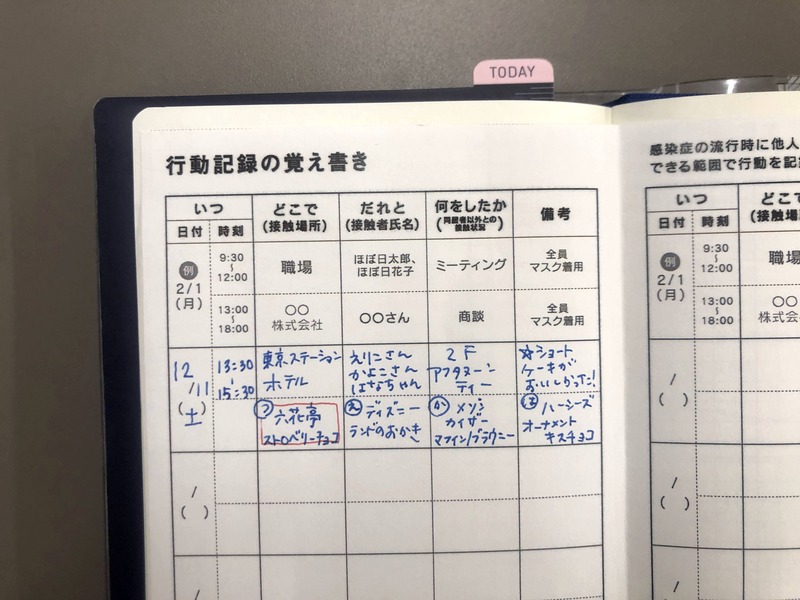 TODAY
行動記録の覚え書き
いつ
どこで
(接触場所)
だれと
(接触者氏名)
何をしたか
(同居者以外との
接触状況)
備考
日付
時刻
例
2/1
(月)
9:30
〜
12:00
職場
ほぼ日太郎、
ほぼ日花子
ミーティング
全員
マスク着用
13:00
〜
18:00
〇〇
株式会社
〇〇さん
商談
全員
マスク着用
12
/11
(土)
13:30
15:30
東京ステーション
ホテル
えりこさん
かよこさん
はなちゃん
2F
アフタヌーン
ティー
☆ショート
ケーキが
おいしかった!
六花亭
ストロベリーチョコ
え ディズニー
ランドのおかき
か メゾン
カイザー
マフィン/ブラウニー
は ハーシーズ
オーナメント
キスチョコ
/
( )
/
感染症の流行時に他人
できる範囲で行動を記
いつ
どこ
(接触場
日付
時刻
例
2/1
(月)
9:30
〜
12:00
職場
13:00
〜
18:00
〇〇
株式会
/
( )
/
( )
/